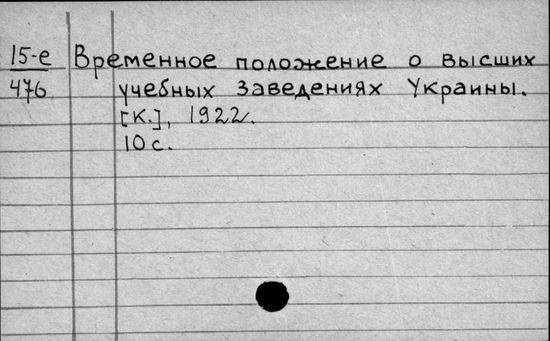 15-е Временное положение о высших
476 учебных заведениях Украины.
[К.], 1922.
10 с.